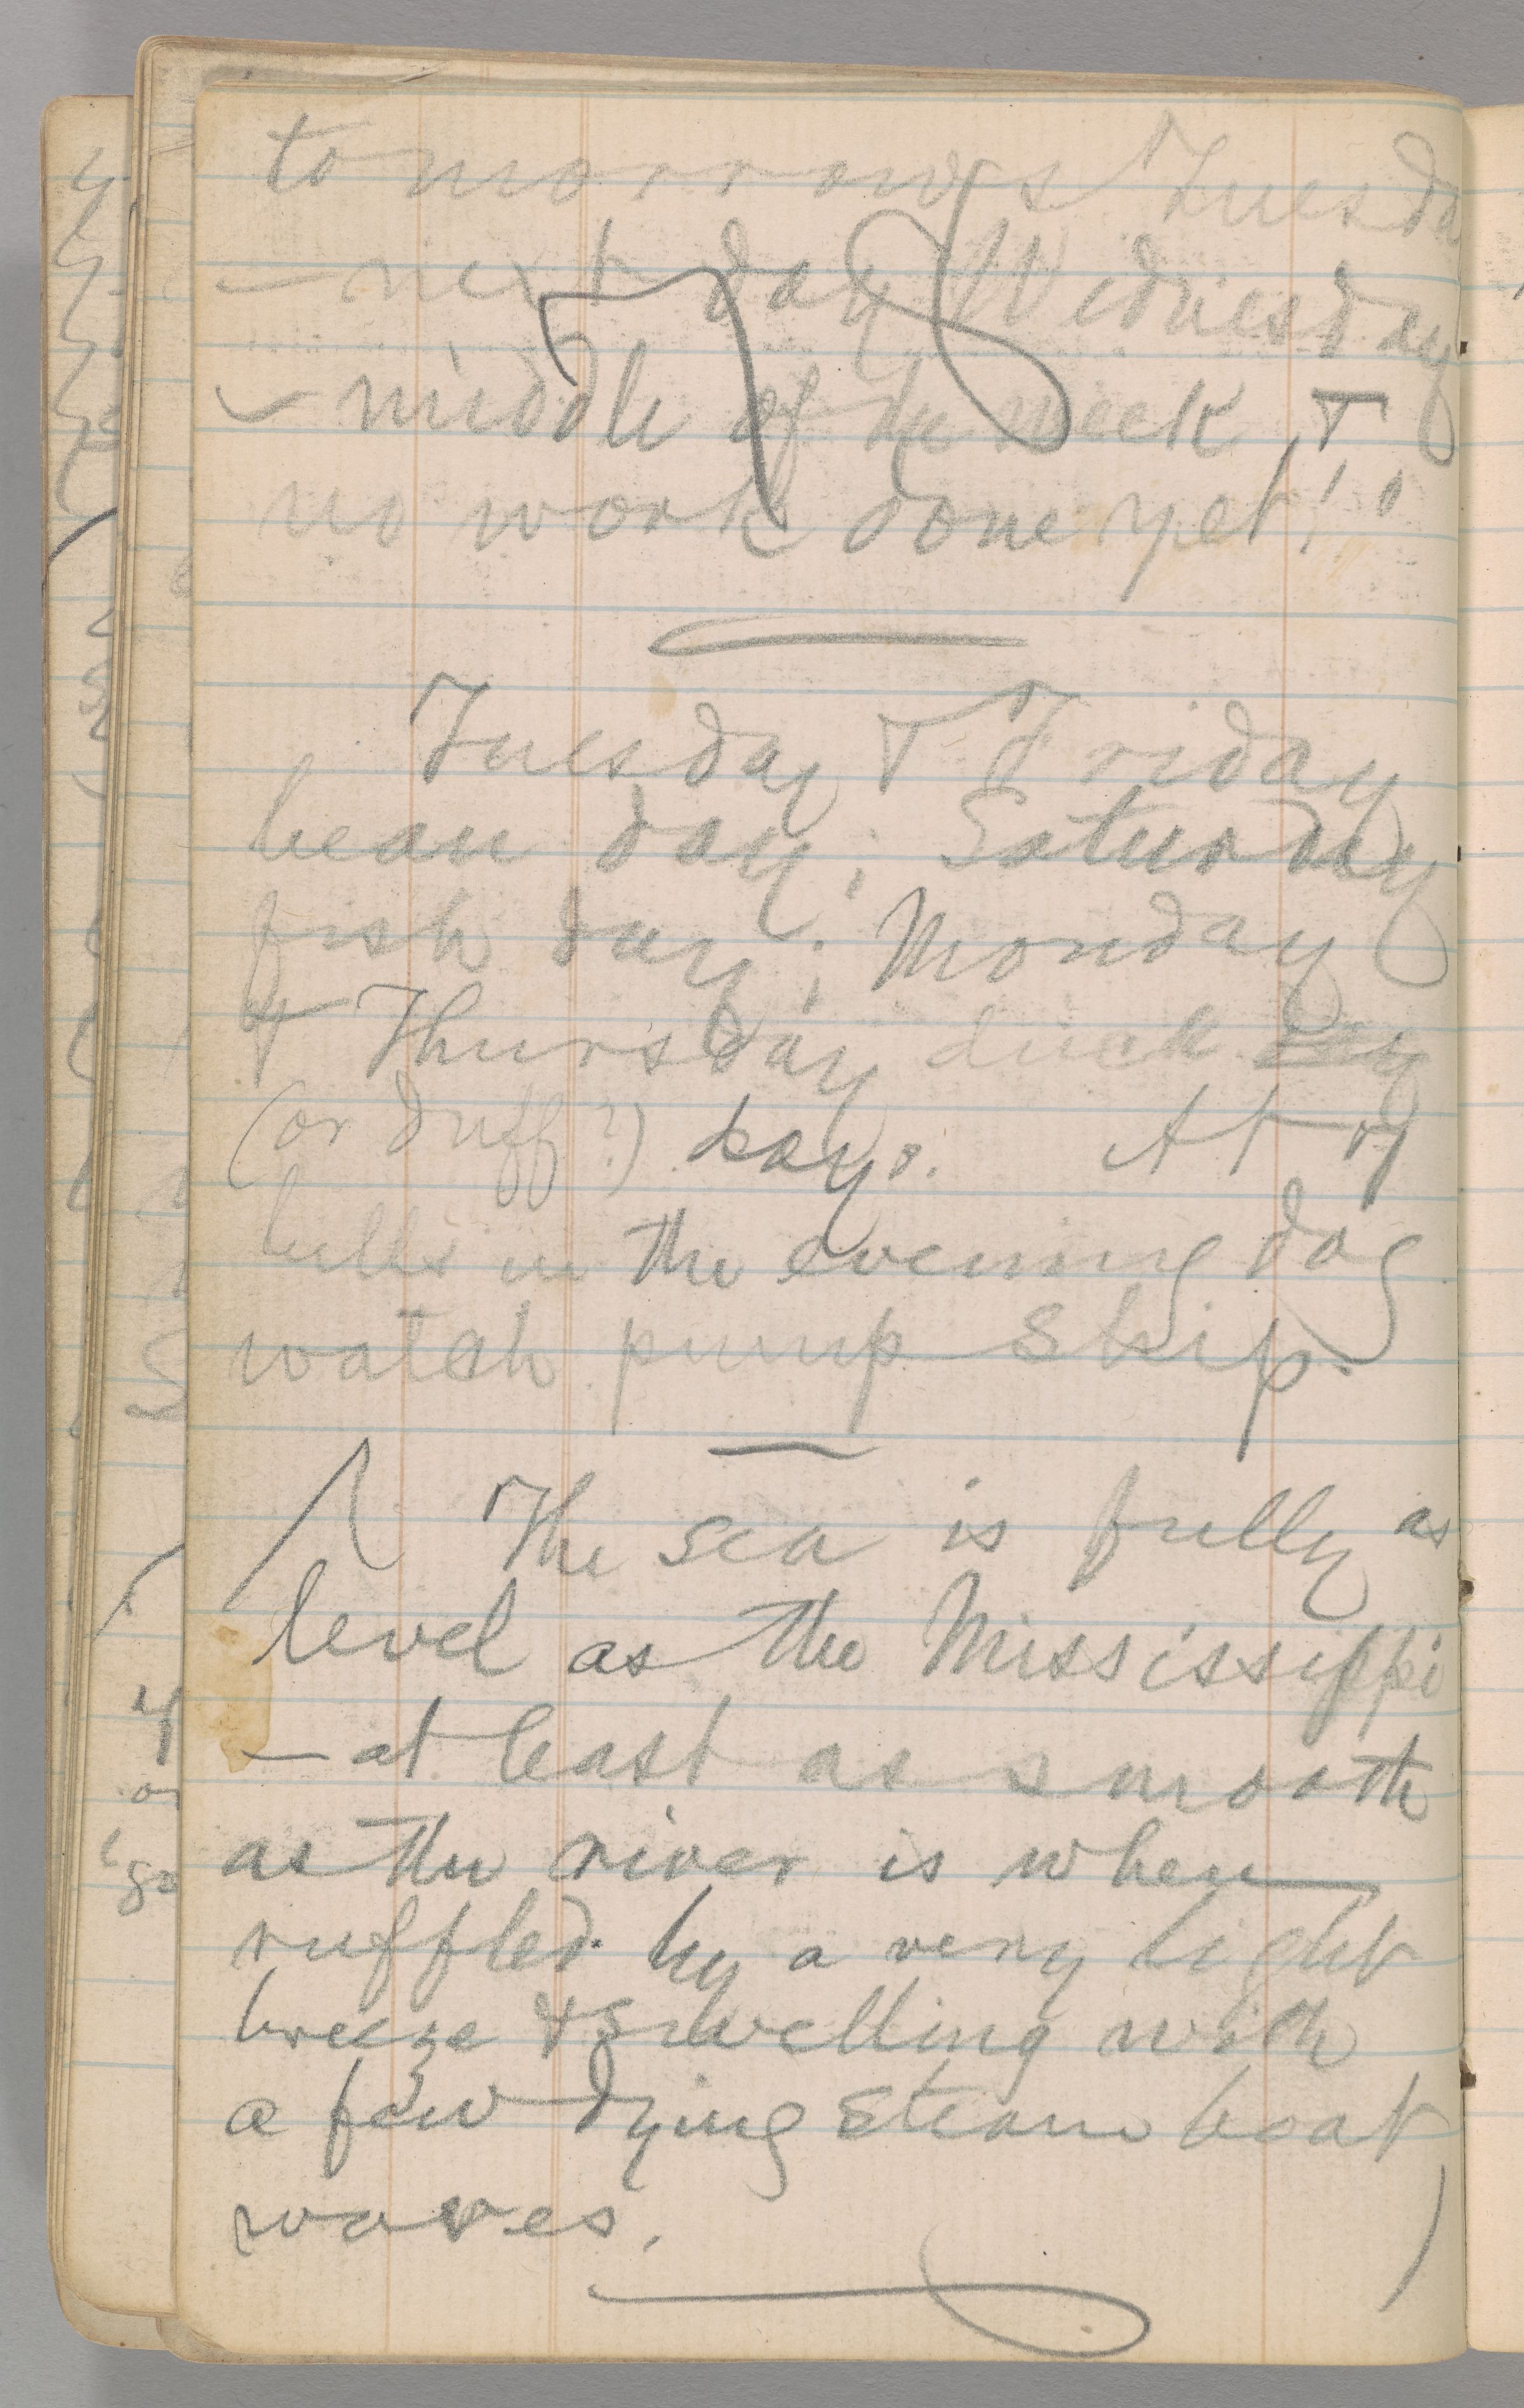 tomorrow's Tuesda
— next day Wednesday
— middle of the week, &
no work done yet!"
Tuesday & Friday
bean day; Saturday
fish day; Monday
& Thursday duck
(or duff?) days. At 7
bells in the evening dog
watch pump ship.
The sea is fully as
level as the Mississippi
— at least as smooth
as the river is when
ruffled by a very light
breeze & swelling with
a few dying steamboat
waves.